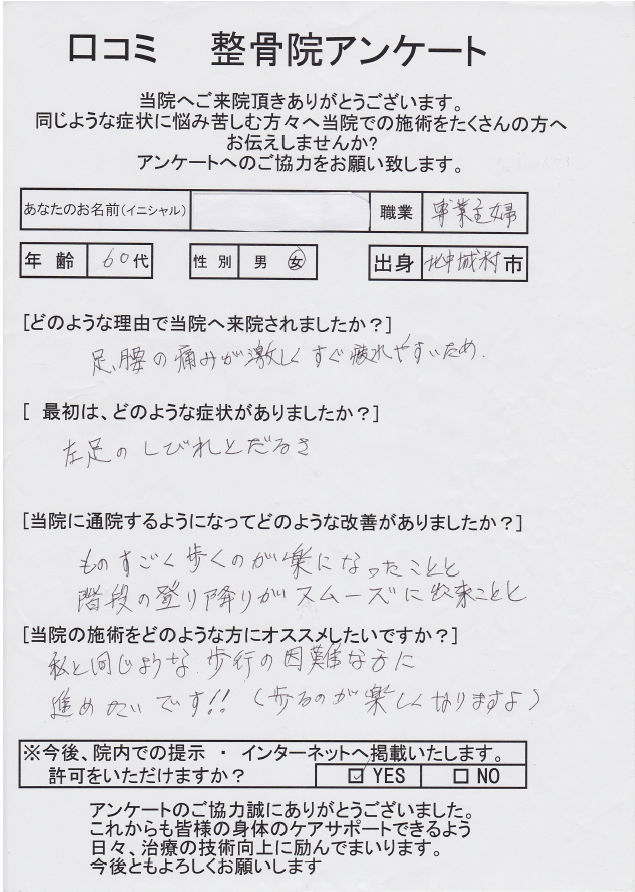 口コミ 整骨院アンケート
当院へご来院頂きありがとうございます。
同じような症状に悩み苦しむ方々へ当院での施術をたくさんの方へ
お伝えしませんか?
アンケートへのご協力をお願い致します。
あなたのお名前(イニシャル) 職業 専業主婦
年齢 60代 性別 男 女 出身 北中城村市
[どのような理由で当院へ来院されましたか?]
足、腰の痛みが激しくすぐ疲れやすいため.
[ 最初は、どのような症状がありましたか?]
左足のしびれとだるさ
[当院に通院するようになってどのような改善がありましたか?]
ものすごく歩くのが楽になったことと
階段の登り降りがスムーズに出来ことと
[当院の施術をどのような方にオススメしたいですか?]
私と同じような、歩行の困難な方に
進めたいです!!(歩るのが楽しくなりますよ)
※今後、院内での提示 ・ インターネットへ掲載いたします。
許可をいただけますか? ☑ YES □ NO
アンケートのご協力誠にありがとうございました。
これからも皆様の身体のケアサポートできるよう
日々、治療の技術向上に励んでまいります。
今後ともよろしくお願いします